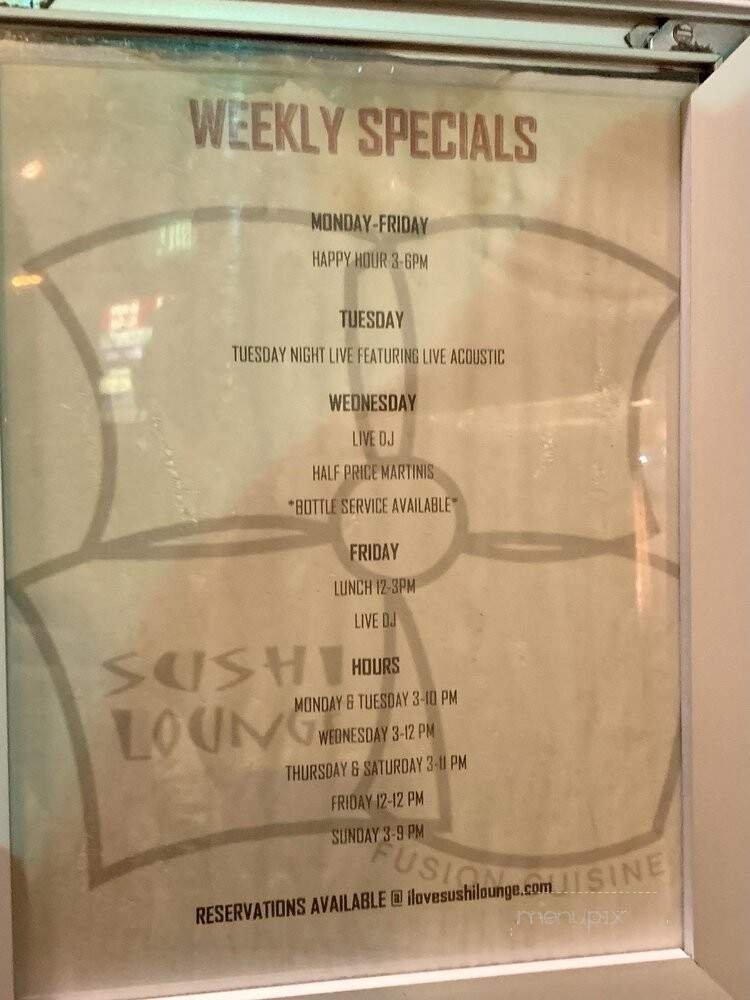 WEEKLY SPECIALS
MONDAY-FRIDAY
HAPPY HOUR 3-6PM
TUESDAY
TUESDAY NIGHT LIVE FEATURING LIVE ACOUSTIC
WEDNESDAY
LIVE DJ
HALF PRICE MARTINIS
*BOTTLE SERVICE AVAILABLE*
FRIDAY
LUNCH 12-3PM
LIVE DJ
HOURS
MONDAY & TUESDAY 3-10 PM
WEDNESDAY 3-12 PM
THURSDAY & SATURDAY 3-11 PM
FRIDAY 12-12 PM
SUNDAY 3-9 PM
SUSHI
LOUNGE
FUSION CUISINE
RESERVATIONS AVAILABLE @ ilovesushilounge.com
menupix